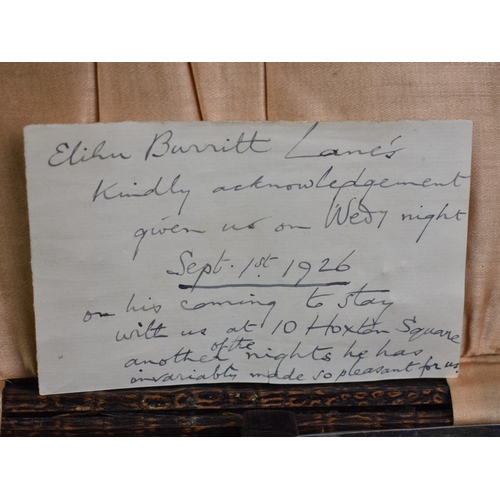 Elihu Burritt Lane's
Kindly acknowledgement
given us on Wedy night
Sept. 1st. 1926
on his coming to stay
with us at 10 Hoxton Square
another of the nights he has
invariably made so pleasant for us.